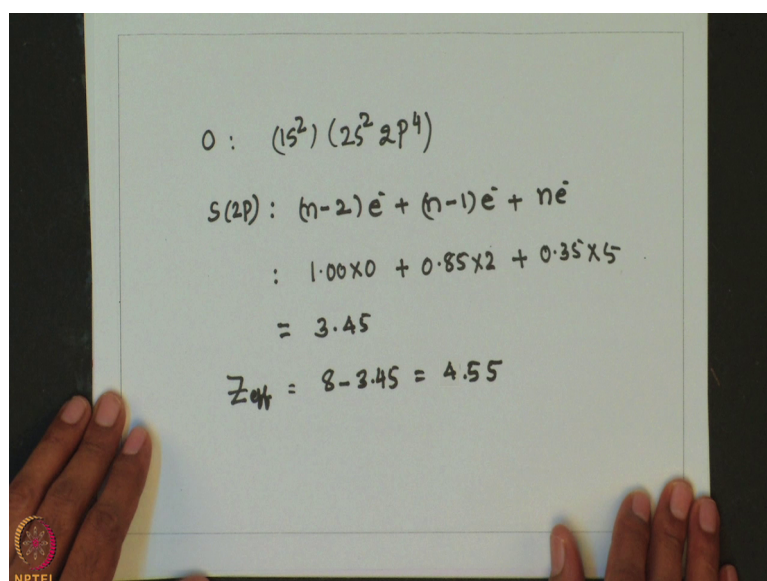 O : (1s²) (2s² 2p⁴)
S(2P) : (n-2)e⁻ + (n-1)e⁻ + ne⁻
: 1.00×0 + 0.85×2 + 0.35×5
= 3.45
Zeff = 8-3.45 = 4.55
NPTEL